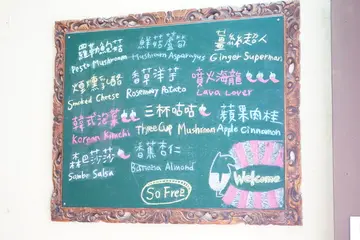 羅勒鮮菇
Pesto Mushroom
鮮菇蘆筍
Mushroom Asparagus
薑絲超人
Ginger Superman
煙燻乳酪
Smoked Cheese
香草洋芋
Rosemary Potato
噴火海龍
Lava Lover
韓式泡菜
Korean Kimchi
三杯咕咕
Three Cup Mushroom
蘋果肉桂
Apple Cinnamon
森巴莎莎
Samba Salsa
香蕉杏仁
Banana Almond
So Free
Welcome